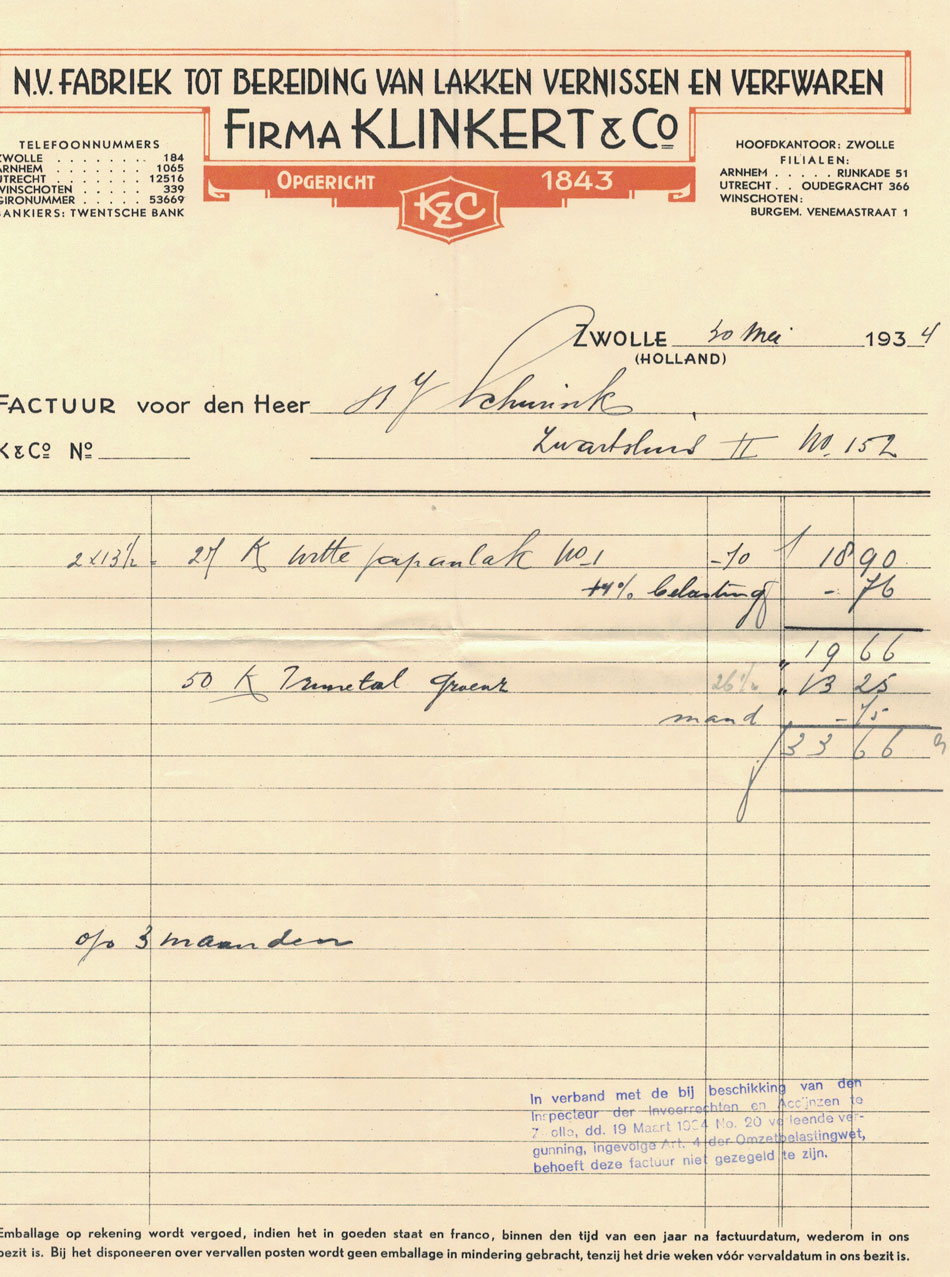 N.V. FABRIEK TOT BEREIDING VAN LAKKEN VERNISSEN EN VERFWAREN
FIRMA KLINKERT & Co
OPGERICHT 1843
KZC
TELEFOONNUMMERS
ZWOLLE . . . . . . . . 184
ARNHEM . . . . . . . 1065
UTRECHT . . . . . . 12516
WINSCHOTEN . . . . . 339
GIRONUMMER . . . . . 53669
BANKIERS: TWENTSCHE BANK
HOOFDKANTOOR: ZWOLLE
FILIALEN:
ARNHEM . . . . . RIJNKADE 51
UTRECHT . . OUDEGRACHT 366
WINSCHOTEN:
BURGEM. VENEMASTRAAT 1
ZWOLLE 30 Mei 1934
(HOLLAND)
FACTUUR voor den Heer Schurink
K & Co No
Zwartsluis II No. 152
2 x 13 1/2 = 27 K witte japanlak No 1 -70 f 18 90
4% belasting - 76
" 19 66
50 K groen 26 1/2 " 13 25
mand - 75
f 33 66
o/o 3 maanden
In verband met de bij beschikking van den
Inspecteur der Invoerrechten en Accijnzen te
Zwolle, dd. 19 Maart 1934 No. 20 verleende ver-
gunning, ingevolge Art. 4 der Omzetbelastingwet,
behoeft deze factuur niet gezegeld te zijn.
Emballage op rekening wordt vergoed, indien het in goeden staat en franco, binnen den tijd van een jaar na factuurdatum, wederom in ons
bezit is. Bij het disponeeren over vervallen posten wordt geen emballage in mindering gebracht, tenzij het drie weken vóór vervaldatum in ons bezit is.